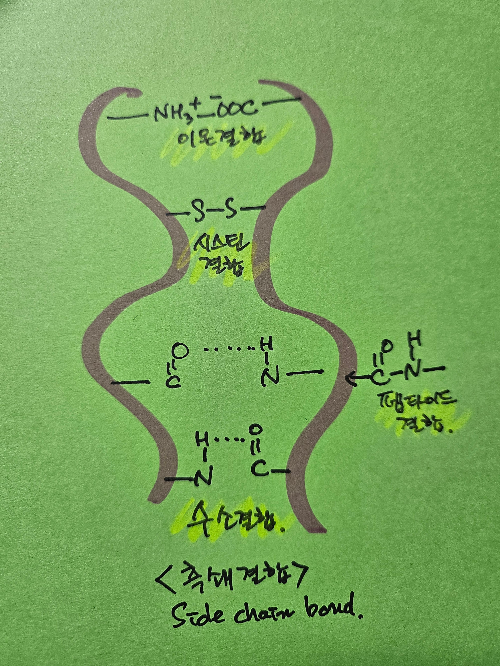 NH₃⁺ ⁻OOC
이온결합
S-S
시스틴
결합
O ...... H
C N
O H
C-N
펩타이드
결합.
H .... O
N C
수소결합.
<측쇄결합>
Side chain bond.